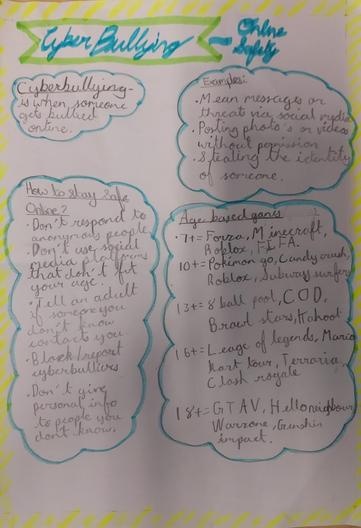 Cyber Bullying - Online
Safety
Cyberbullying-
is when someone
gets bullied
online.
Examples:
• Mean messages or
threats via social media
• Posting photo's or videos
without permission
• Stealing the identity
of someone.
How to stay Safe
Online?
• Don't respond to
anonymous people
• Don't use social
media platforms
that don't fit
your age.
• Tell an adult
if someone you
don't know
contacts you.
• Block/report
cyberbulliers
• Don't give
personal info
to people you
don't know.
Age based games
• 7+ = Forza, Minecraft,
Roblox, FIFA.
10+ = Pokémon go, Candy crush,
Roblox, Subway surfers
13+ = 8 ball pool, COD,
Brawl stars, Kahoot
16+ = Leage of legends, Mario
Kart tour, Terraria,
Clash royale
18+ = GTAV, Hello neighbour
Warzone, Genshin
impact.